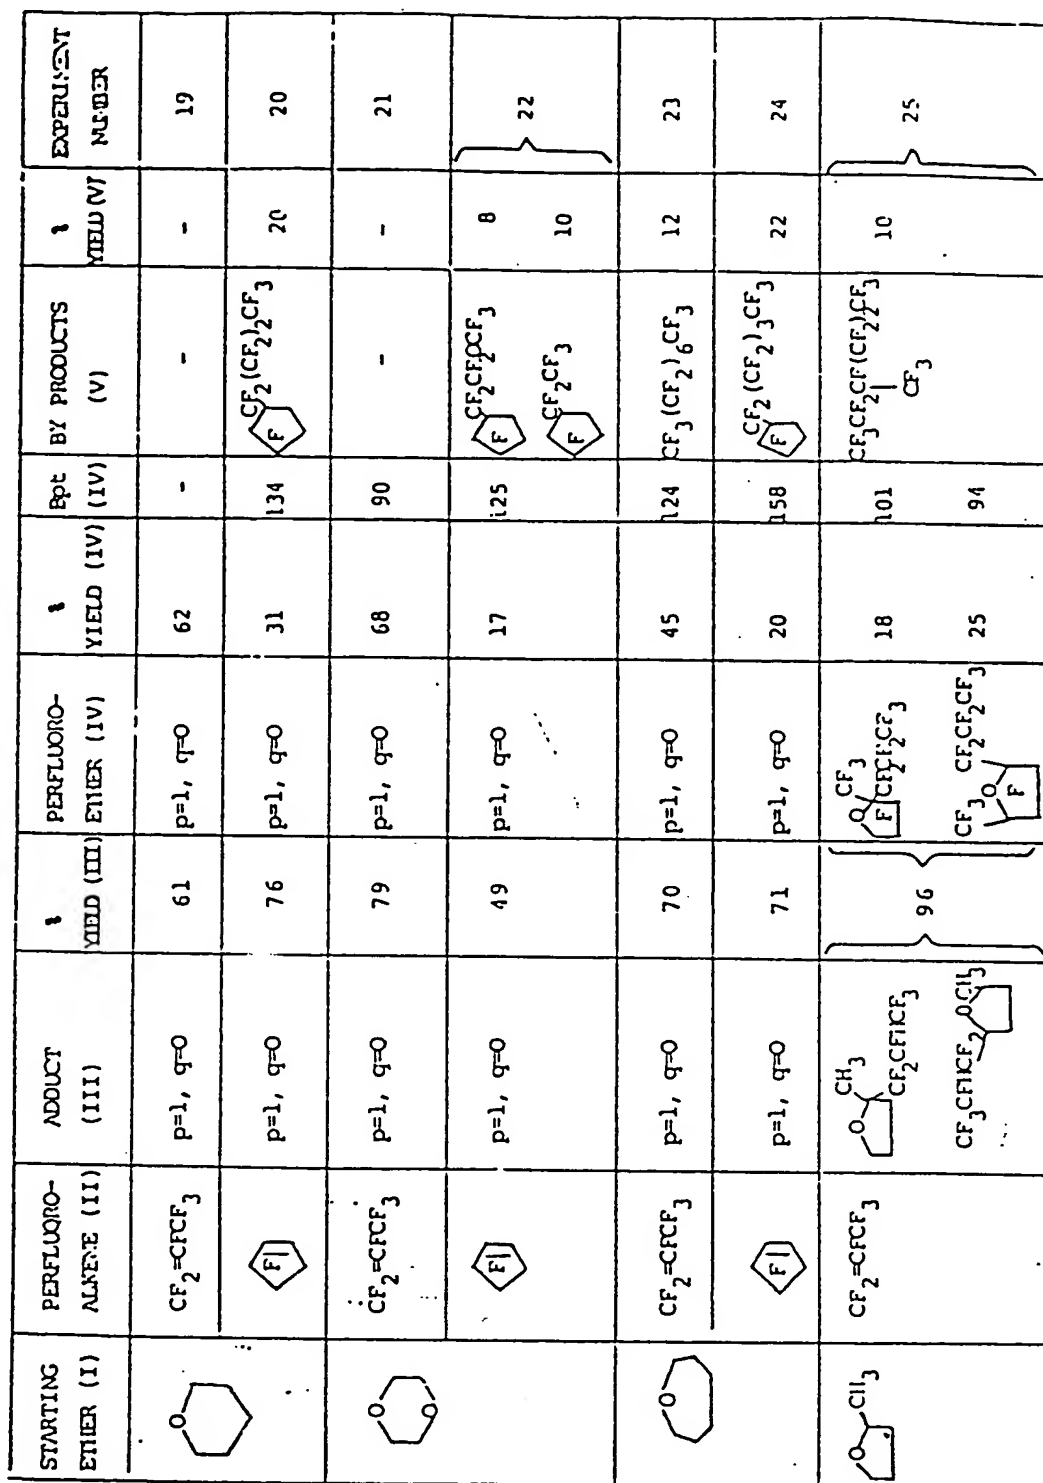 STARTING ETHER (I) | PERFLUORO-ALKENE (II) | ADDUCT (III) | % YIELD (III) | PERFLUORO-ETHER (IV) | % YIELD (IV) | Bpt (IV) | BY PRODUCTS (V) | % YIELD (V) | EXPERIMENT NUMBER
O | CF2=CFCF3 | p=1, q=O | 61 | p=1, q=O | 62 | - | - | - | 19
F | p=1, q=O | 76 | p=1, q=O | 31 | 134 | F CF2(CF2)2CF3 | 20 | 20
O O | CF2=CFCF3 | p=1, q=O | 79 | p=1, q=O | 68 | 90 | - | - | 21
F | p=1, q=O | 49 | p=1, q=O | 17 | 125 | F CF2CF2OCF3 | 8 | 22
F CF2CF3 | 10
O | CF2=CFCF3 | p=1, q=O | 70 | p=1, q=O | 45 | 124 | CF3(CF2)6CF3 | 12 | 23
F | p=1, q=O | 71 | p=1, q=O | 20 | 158 | F CF2(CF2)3CF3 | 22 | 24
O CH3 | CF2=CFCF3 | O CH3 CF2CFHCF3 | 96 | O CF3 F CF2CF2CF3 | 18 | 101 | CF3CF2CF(CF2)2CF3 CF3 | 10 | 25
CF3CFHCF2 O CH3 | CF3 O F CF2CF2CF3 | 25 | 94